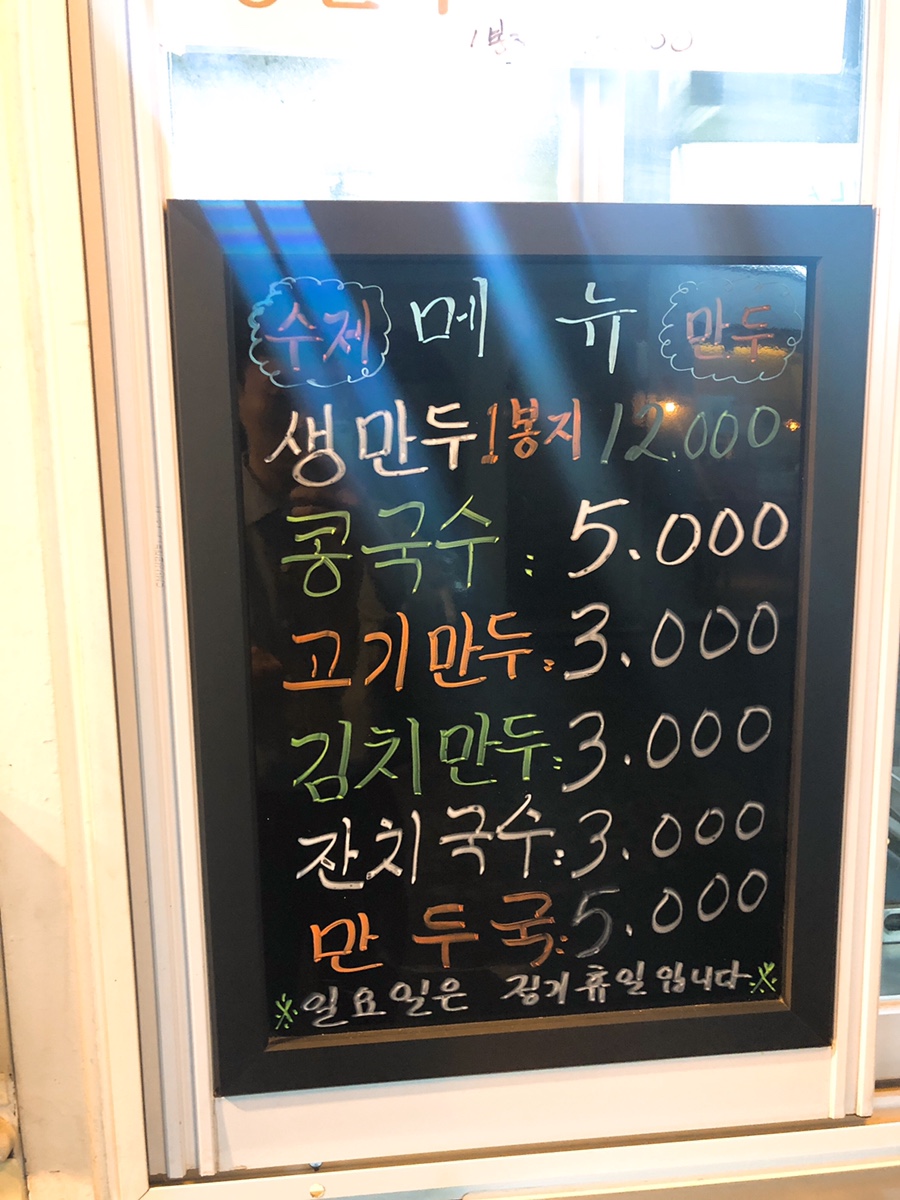 수제 메뉴 만두
생만두 1봉지 12.000
콩국수 : 5.000
고기만두 : 3.000
김치만두 : 3.000
잔치국수 : 3.000
만두국 : 5.000
일요일은 정기휴일입니다